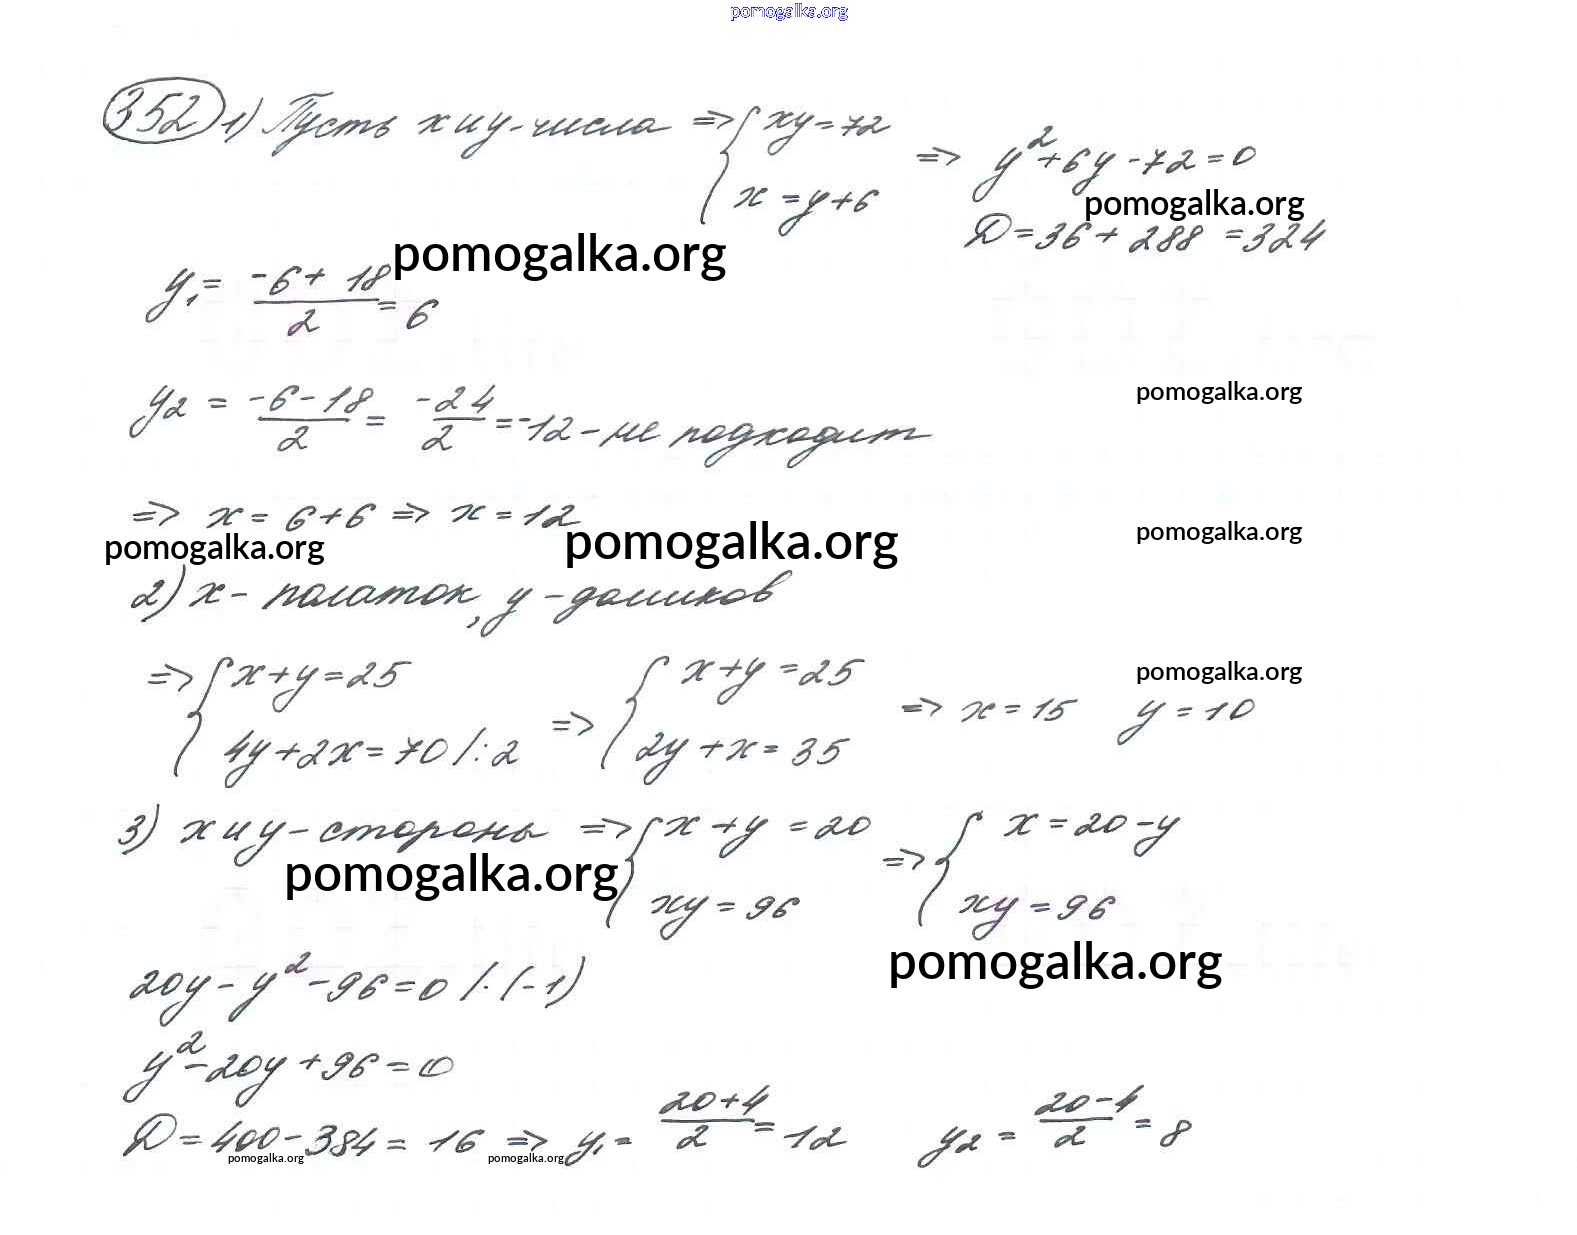 pomogalka.org
352 1) Пусть x и y - числа => { xy = 72
x = y + 6 => y² + 6y - 72 = 0
pomogalka.org
D = 36 + 288 = 324
pomogalka.org
y₁ = (-6 + 18)/2 = 6
pomogalka.org
y₂ = (-6 - 18)/2 = -24/2 = -12 - не подходит
=> x = 6 + 6 => x = 12
pomogalka.org pomogalka.org pomogalka.org
2) x - палаток, y - домиков
=> { x + y = 25
4y + 2x = 70 /:2 => { x + y = 25
2y + x = 35 => x = 15 y = 10
pomogalka.org
3) x и y - стороны => { x + y = 20
xy = 96 => { x = 20 - y
xy = 96
pomogalka.org
pomogalka.org
20y - y² - 96 = 0 /·(-1)
y² - 20y + 96 = 0
D = 400 - 384 = 16 => y₁ = (20 + 4)/2 = 12 y₂ = (20 - 4)/2 = 8
pomogalka.org pomogalka.org